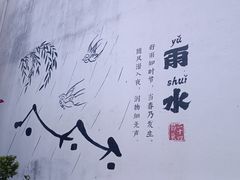 yǔ
雨
shuǐ
水
好雨知时节，当春乃发生。
随风潜入夜，润物细无声。